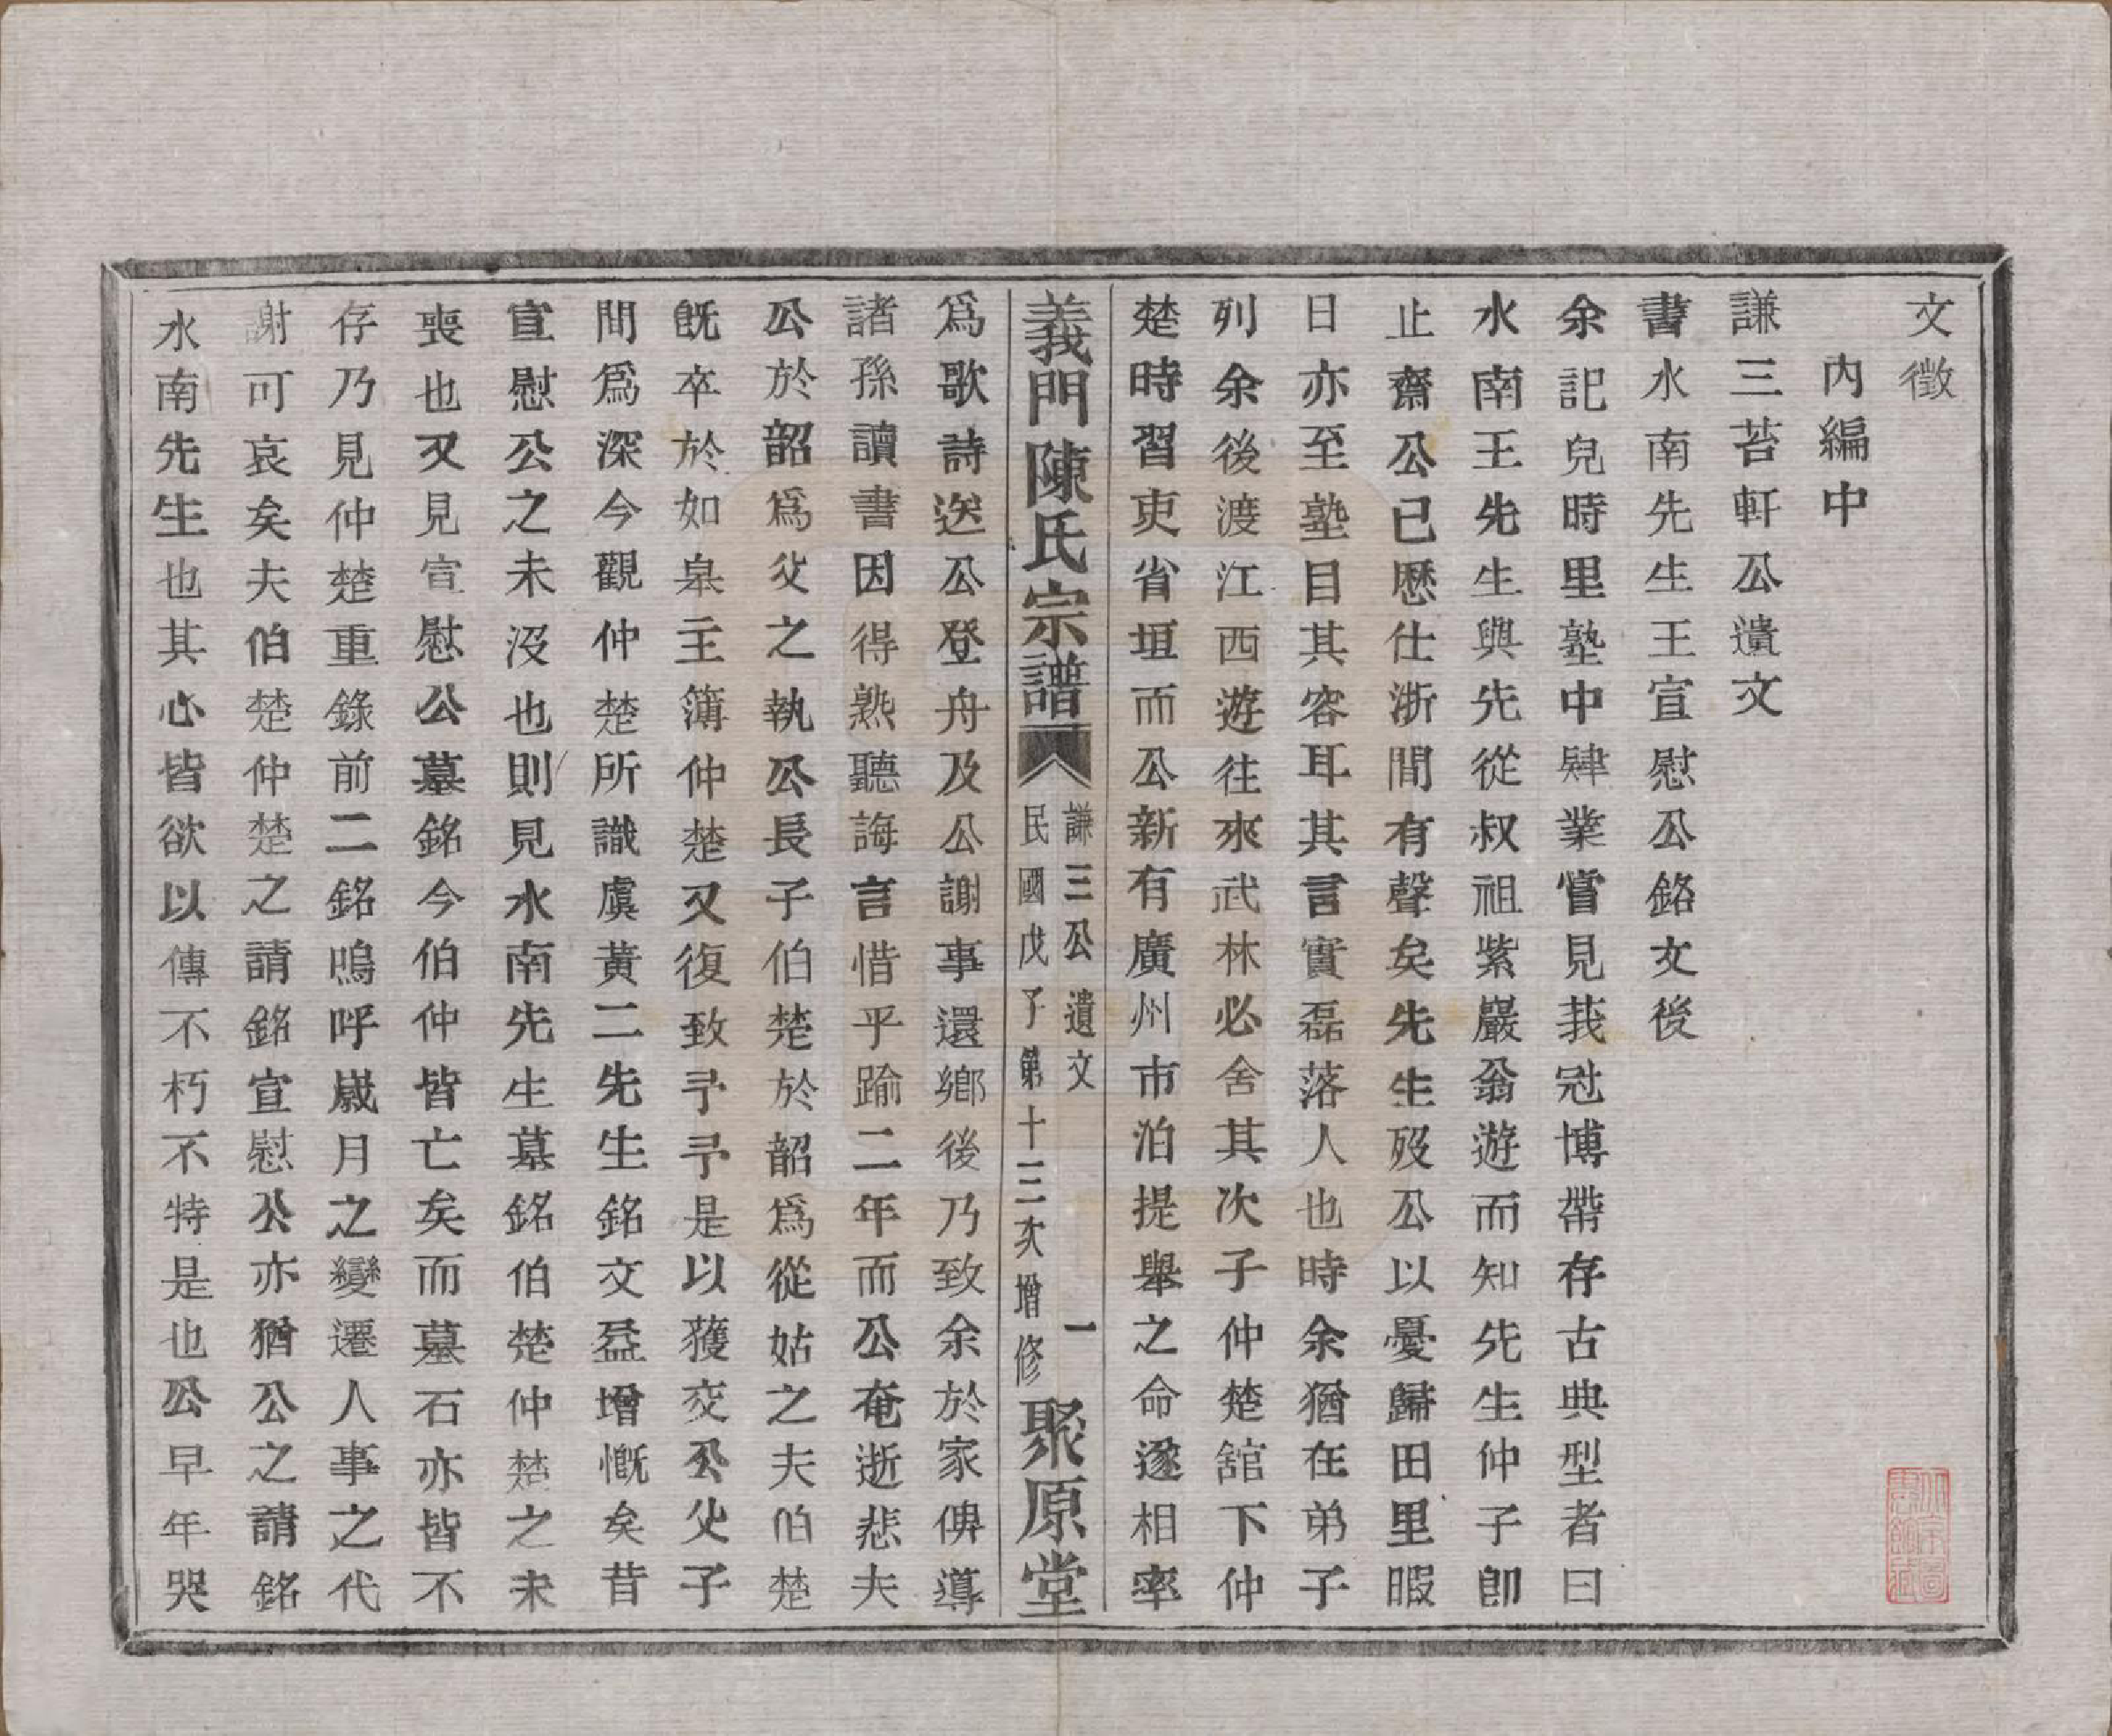 文徵
內編中
謙三苔軒公遺文
書水南先生王宣慰公銘文後
余記兒時里塾中肄業嘗見莪冠博帶存古典型者曰
水南王先生與先從叔祖紫巖翁遊而知先生仲子卽
止齋公已歷仕浙間有聲矣先生歿公以憂歸田里暇
日亦至塾目其容耳其言實磊落人也時余猶在弟子
列余後渡江西遊往來武林必舍其次子仲楚舘下仲
楚時習吏省垣而公新有廣州市泊提舉之命遂相率
義門陳氏宗譜
謙三公遺文
一
民國戊子第十三次增修
聚原堂
爲歌詩送公登舟及公謝事還鄉後乃致余於家俾導
諸孫讀書因得熟聽誨言惜乎踰二年而公奄逝悲夫
公於韶爲父之執公長子伯楚於韶爲從姑之夫伯楚
旣卒於如皋主簿仲楚又復致予予是以獲交公父子
間爲深今觀仲楚所識虞黃二先生銘文益增慨矣昔
宣慰公之未沒也則見水南先生墓銘伯楚仲楚之未
喪也又見宣慰公墓銘今伯仲皆亡矣而墓石亦皆不
存乃見仲楚重錄前二銘嗚呼歲月之變遷人事之代
謝可哀矣夫伯楚仲楚之請銘宣慰公亦猶公之請銘
水南先生也其心皆欲以傳不朽不特是也公早年哭